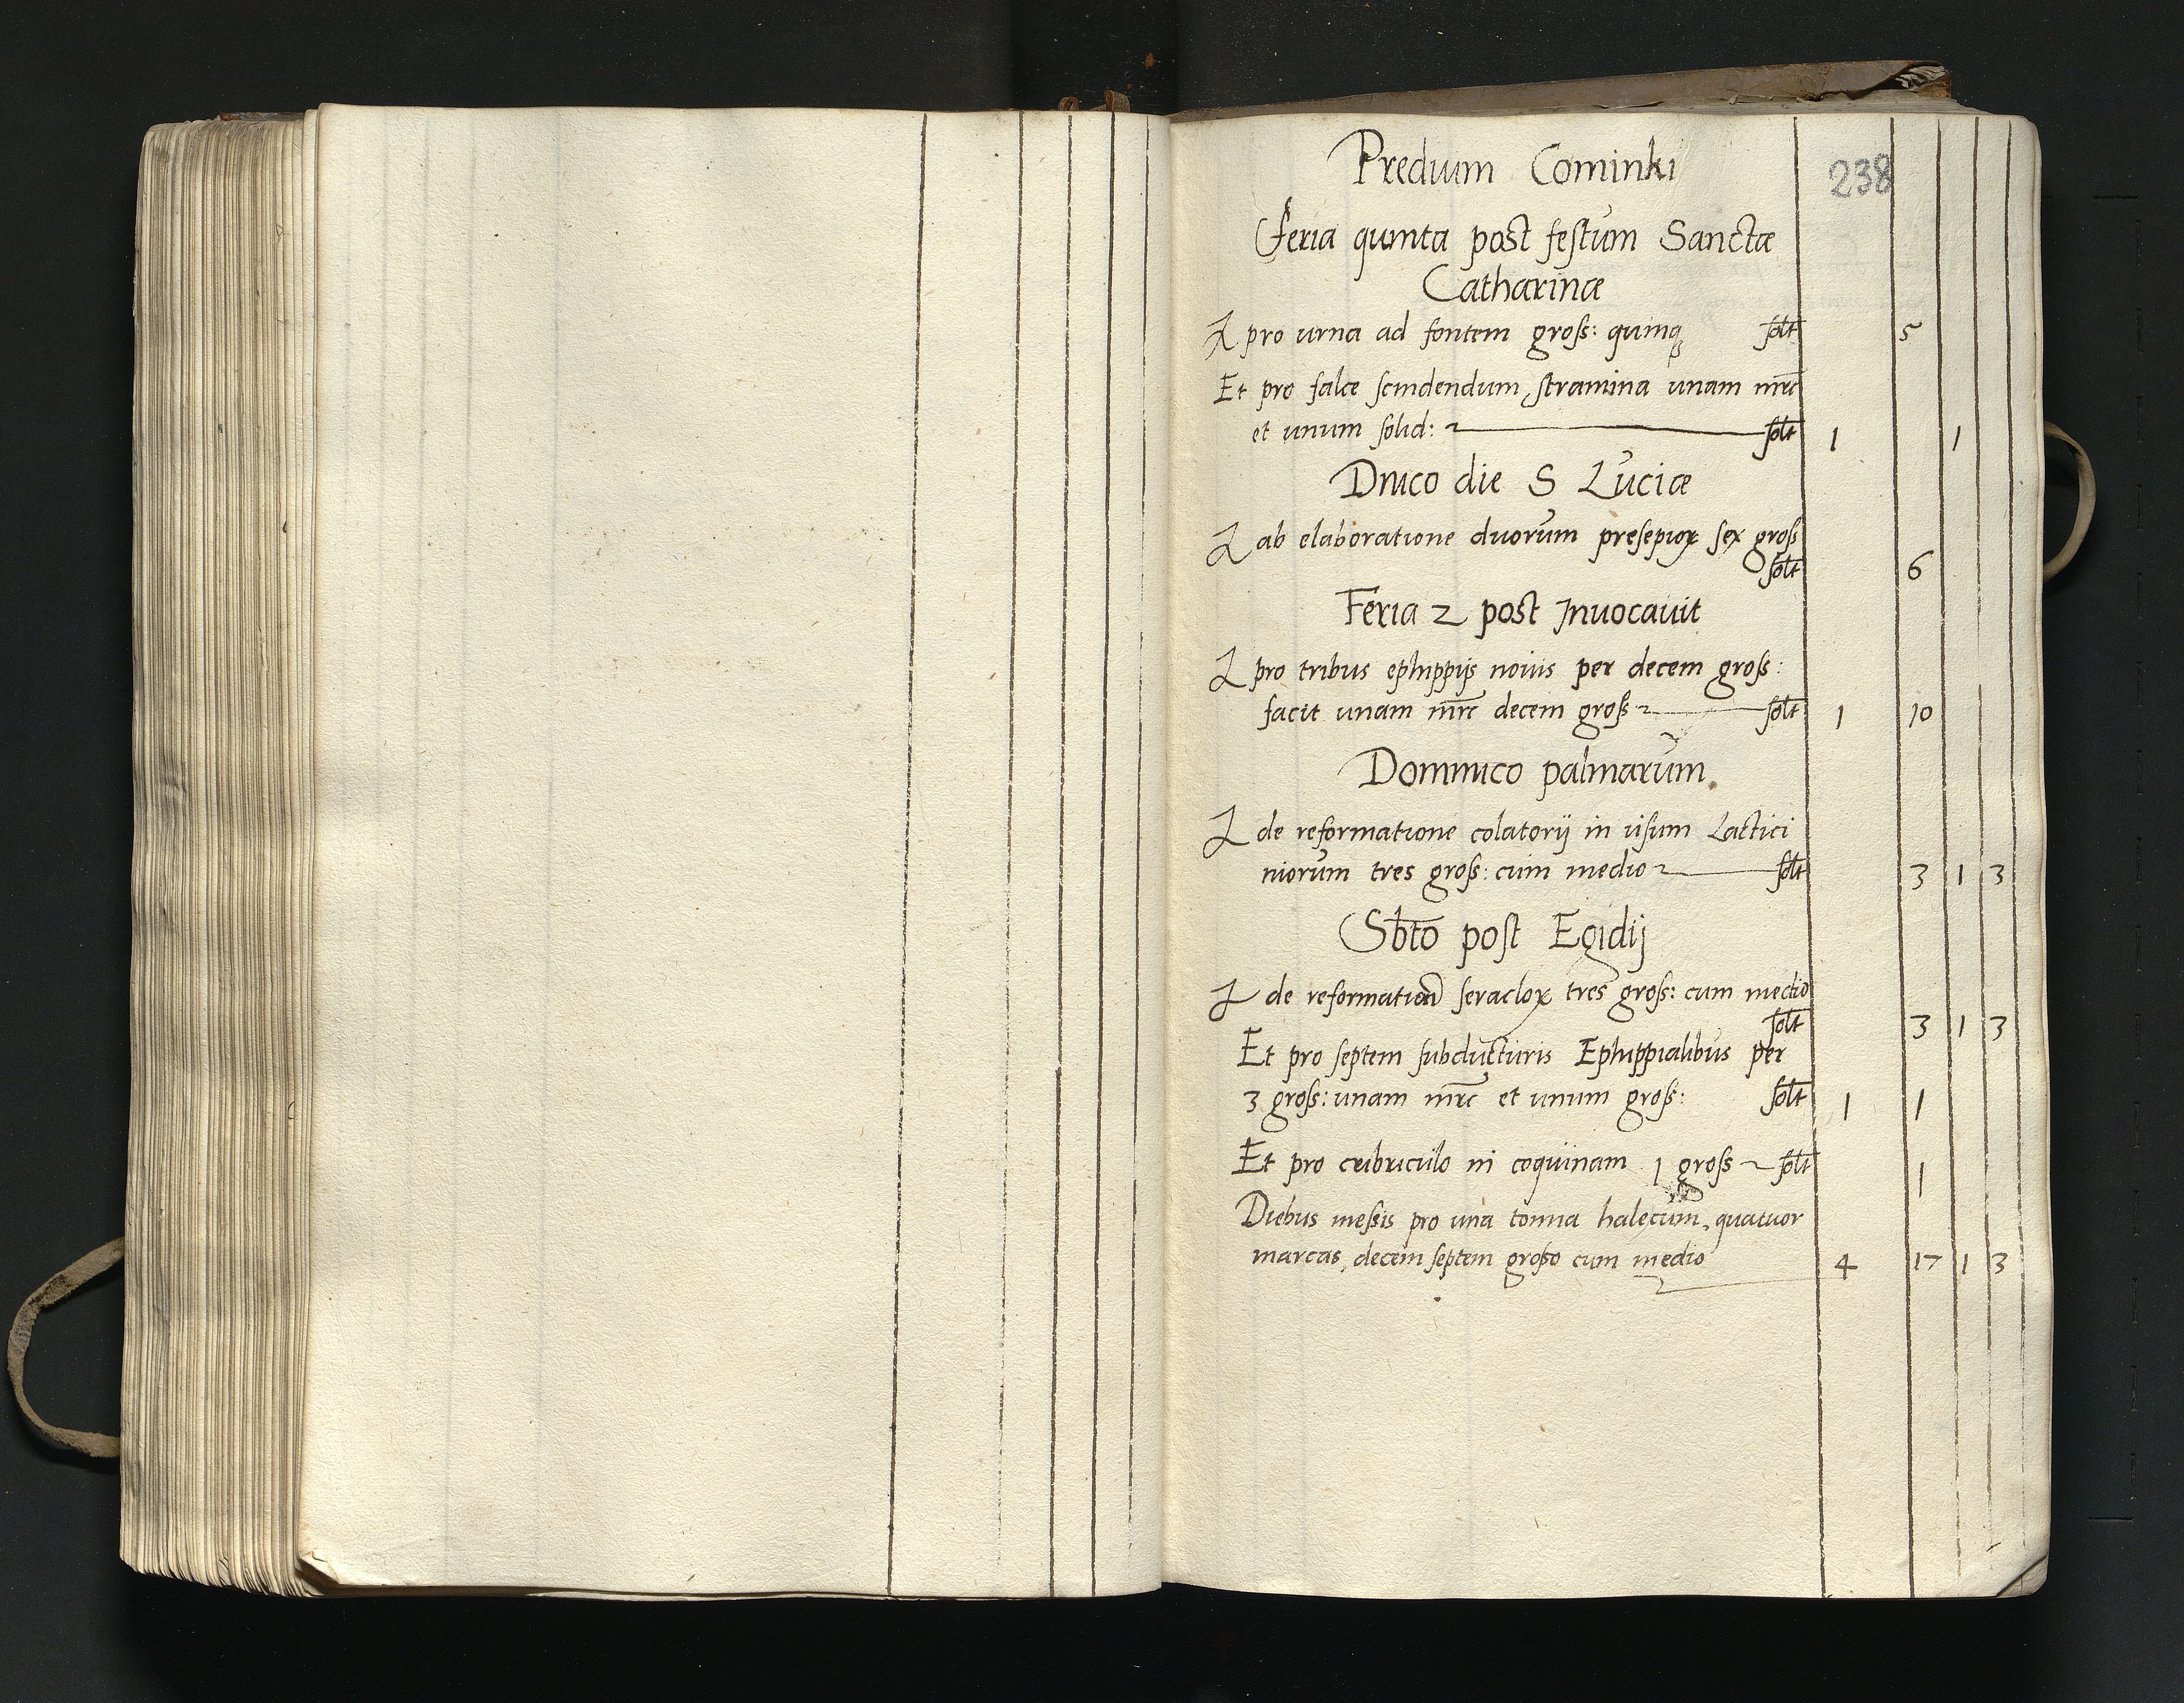 238
Predium Cominki
Feria quinta post festum Sanctæ
Catharinæ
pro urna ad fontem gross: quinq solt 5
Et pro falce scindendum stramina unam mrc
et unum solid: solt 1 1
Dnico die S Luciæ
ab elaboratione duorum presepior sex gross
solt 6
Feria 2 post Inuocauit
pro tribus ephippijs nouis per decem gross:
facit unam mrc decem gross solt 1 10
Dominico palmarum.
de reformatione colatorij in usum Lactici
niorum tres gross: cum medio solt 3 1 3
Sbto post Egidij
de reformation seraclor tres gross: cum medio
solt 3 1 3
Et pro septem subducturis Ephippialibus per
3 gross: unam mrc et unum gross: solt 1 1
Et pro cribriculo in coquinam 1 gross solt 1
Diebus messis pro una tonna halecum, quatuor
marcas, decem septem grosso cum medio 4 17 1 3